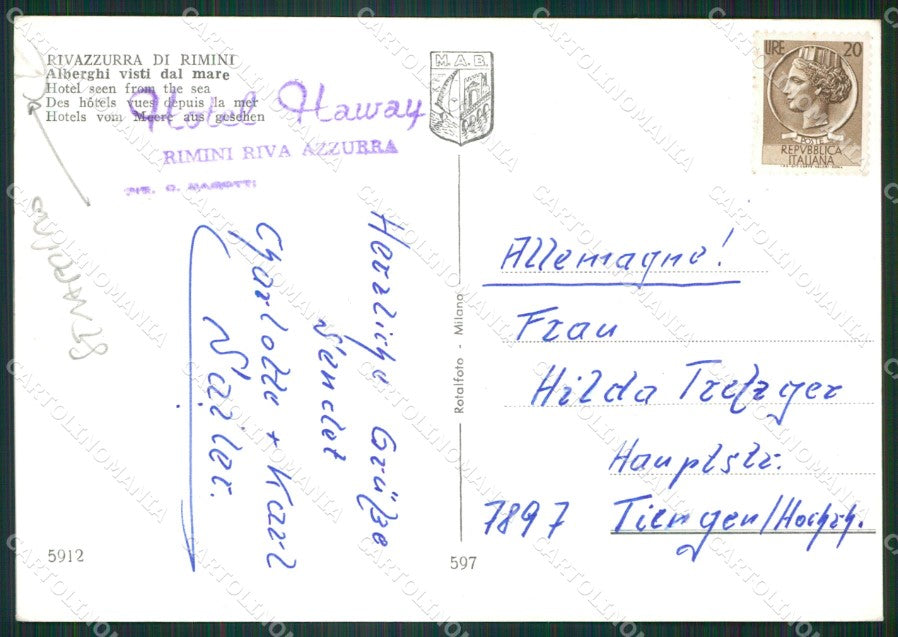 RIVAZZURRA DI RIMINI
Alberghi visti dal mare
Hotel seen from the sea
Des hôtels vues depuis la mer
Hotels vom Meere aus gesehen
Hotel Haway
RIMINI RIVA AZZURRA
M.A.B.
LIRE 20
POSTE
REPVBBLICA
ITALIANA
Herzliche Grüße
sendet
Charlotte + Karl
5912
Rotalfoto - Milano
597
Allemagne!
Frau
Hilda Trefzger
Hauptstr.
7897 Tiengen/Hochrh.
CARTOLINOMANIA